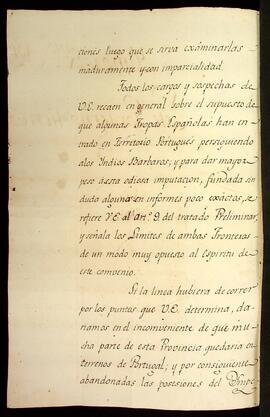 ciones luego que se sirva exâminarlas
maduramente y con imparcialidad.
Todos los cargos y sospechas de
V.E. recaen en general sobre el supuesto de
que algunas Tropas Españolas han en
trado en Territorio Portugués persiguiendo
alos Indios Barbaros; y para dar mayor
peso á esta odiosa imputacion, fundada sin
duda alguna en informes poco exactos, se
refiere V.E. al art.º 9. del tratado Preliminar
y señala los Limites de ambas Fronteras
de un modo muy opuesto al Espiritu de
este convenio.
Si la linea hubiera de correr
por los puntos que V.E. determina, da-
riamos en el inconveniente de que mu
cha parte de esta Provincia quedaria en
terrenos de Portugal, y por consiguiente
abandonadas las posesiones del